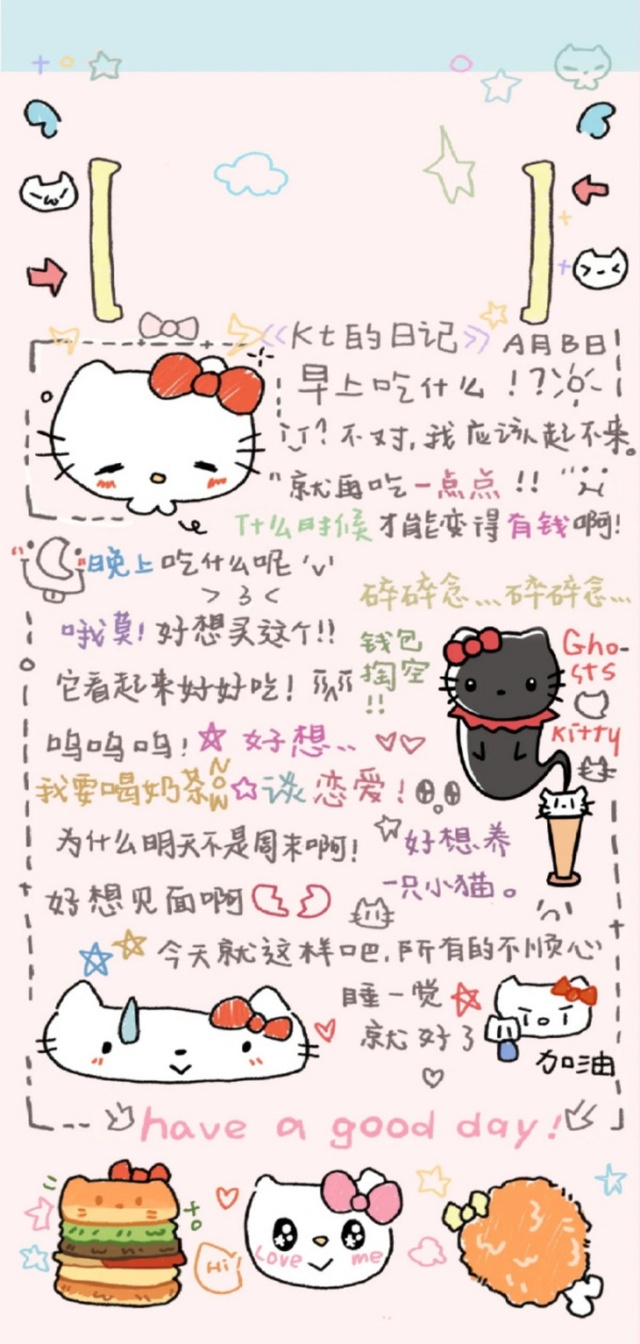 《Kt的日记》 A月B日
早上吃什么！?
不对,我应该起不来。
"就再吃一点点!!"
什么时候才能变得有钱啊!
晚上吃什么呢 'v'
> 3 <
碎碎念... 碎碎念...
哦莫! 好想买这个!!
钱包
掏空
!!
Gho-
sts
kitty
它看起来好好吃!
呜呜呜! 好想...
我要喝奶茶 NOW 谈恋爱!
为什么明天不是周末啊!
好想养
一只小猫。
好想见面啊
今天就这样吧,所有的不顺心
睡一觉
就好了
加油
have a good day!
Hi!
Love me